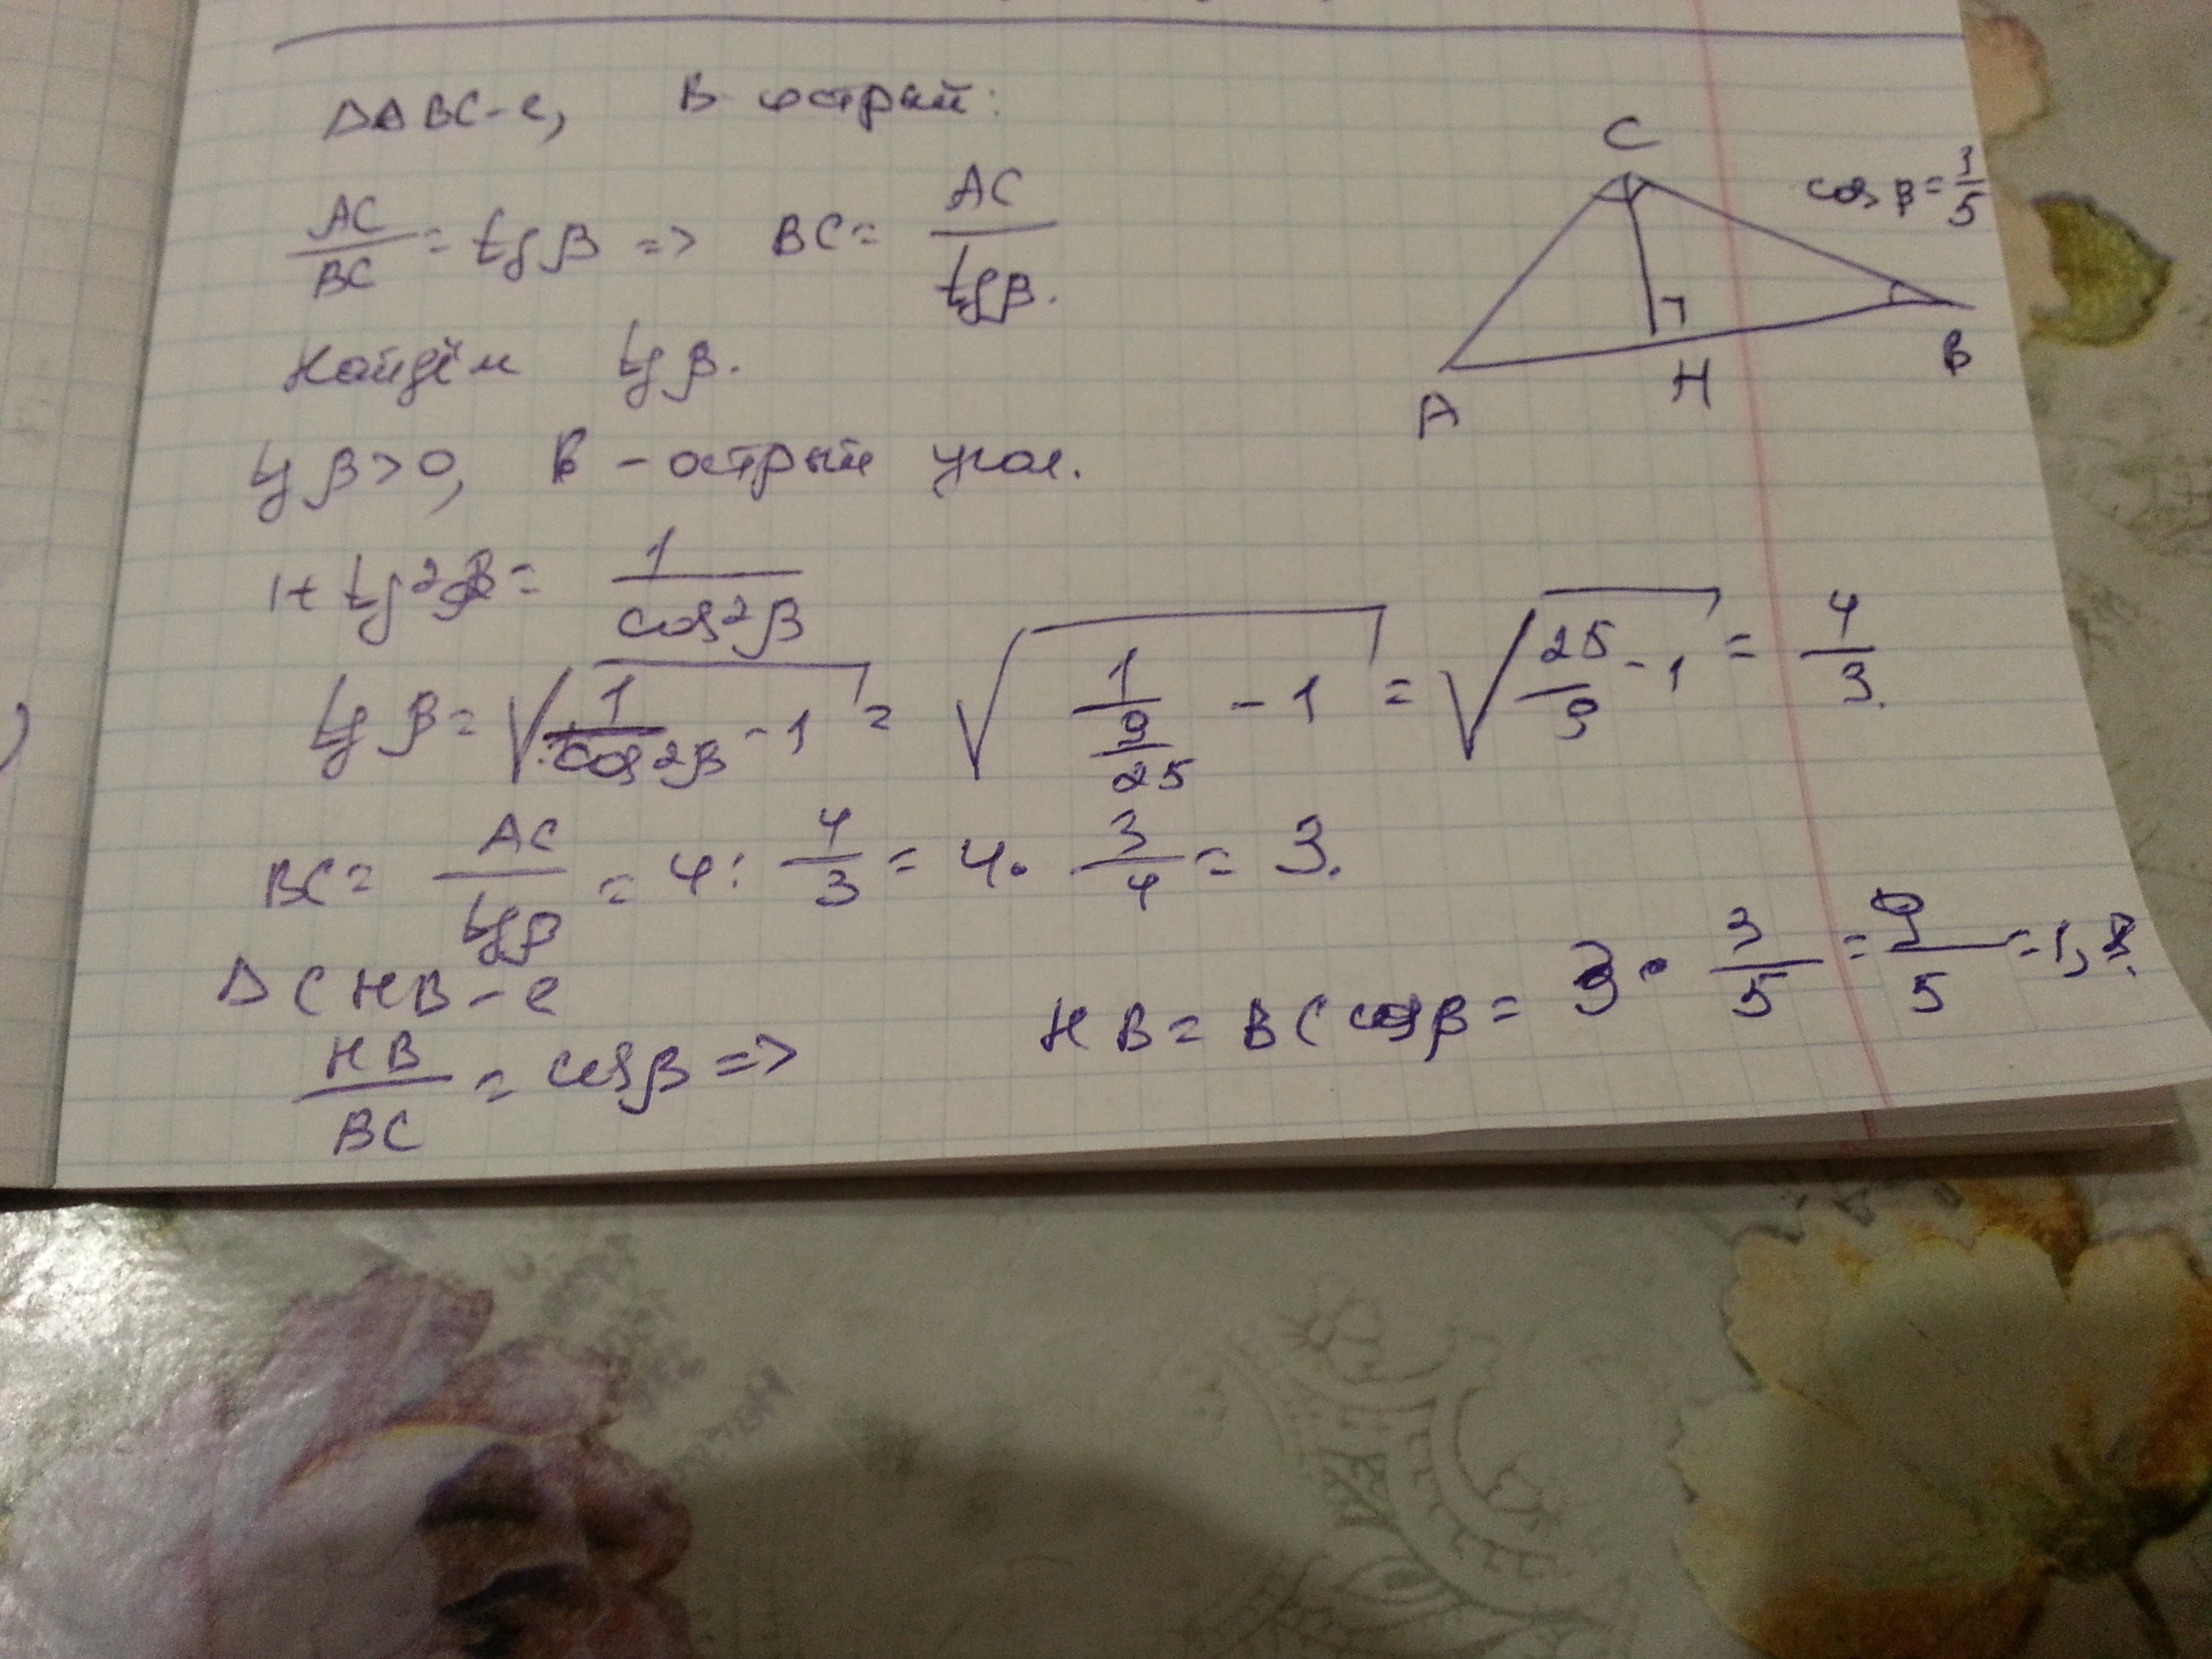 ΔABC-e, B острый:
AC/BC = tgβ => BC = AC/tgβ.
Найдём tgβ.
tgβ>0, B - острый угол.
1+tg²β = 1/cos²β
tgβ = √(1/cos²β - 1) = √(1/(9/25) - 1) = √(25/9 - 1) = 4/3.
BC = AC/tgβ = 4 : 4/3 = 4 · 3/4 = 3.
ΔCHB-e
HB/BC = cosβ => HB = BC cosβ = 3 · 3/5 = 9/5 = 1,8.
C
cos β = 3/5
A
H
B